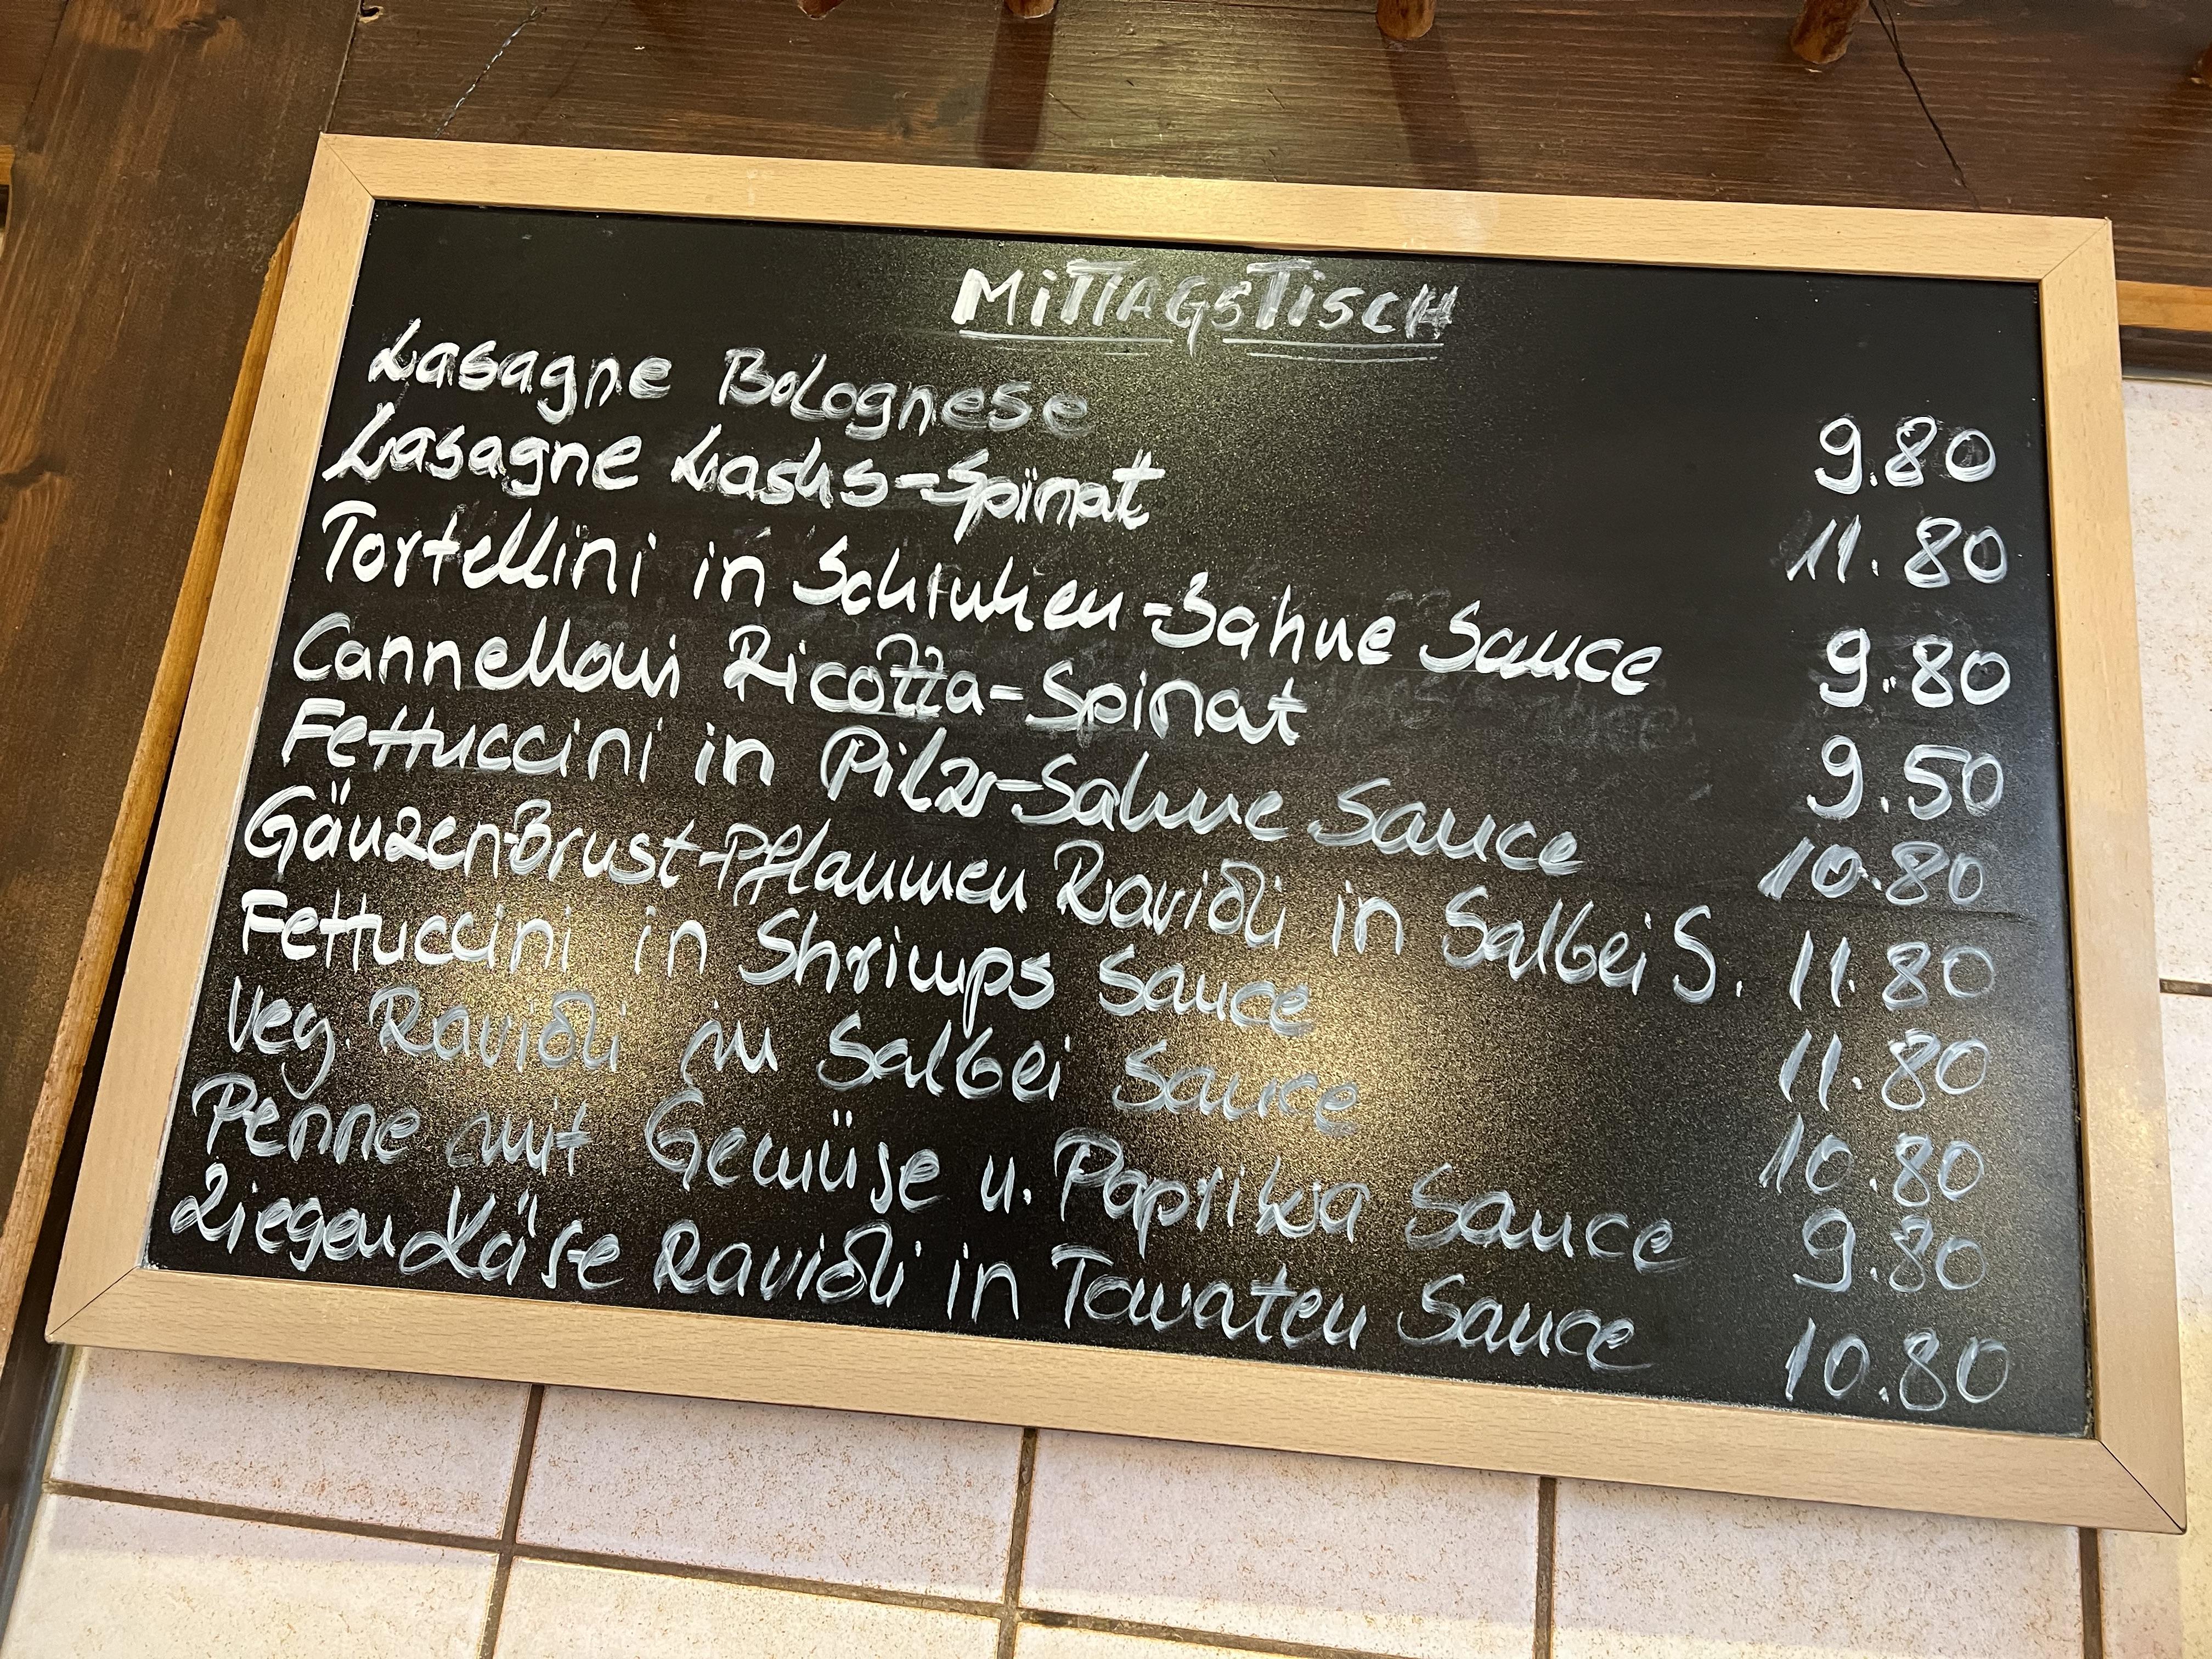 MiTTAGSTiSCH
Lasagne Bolognese 9.80
Lasagne Lachs-Spinat 11.80
Tortellini in Schinken-Sahne Sauce 9.80
Cannelloni Ricotta-Spinat 9.50
Fettuccini in Pilz-Sahne Sauce 10.80
Gänzen-Brust-Pflaumen Ravioli in Salbei S. 11.80
Fettuccini in Shrimps Sauce 11.80
Veg. Ravioli in Salbei Sauce 10.80
Penne mit Gemüse u. Paprika Sauce 9.80
Ziegen Käse Ravioli in Tomaten Sauce 10.80